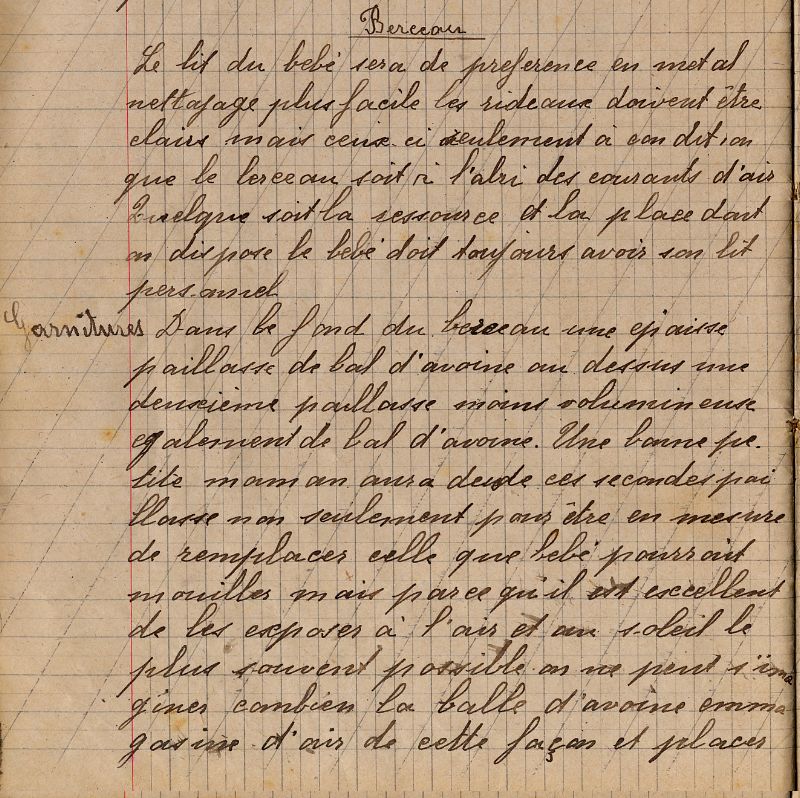 Berceau
Le lit du bebé sera de preference en metal
nettayage plus facile les rideaux doivent être
clairs mais ceux ci seulement à condition
que le berceau soit à l'abri des courants d'air
Quelque soit la ressource et la place dont
on dispose le bebé doit toujours avoir son lit
personnel
Garnitures Dans le fond du berceau une epaisse
paillasse de bal d'avoine au dessus une
deuxième paillasse moins volumineuse
egalement de bal d'avoine. Une bonne pe-
tite maman aura de ces secondes pai
llasse non seulement pour être en mesure
de remplacer celle que bebé pourrait
mouiller mais parce qu'il est excellent
de les exposer à l'air et au soleil le
plus souvent possible on ne peut s'ima
giner combien la balle d'avoine emma
gasine d'air de cette façon et placer